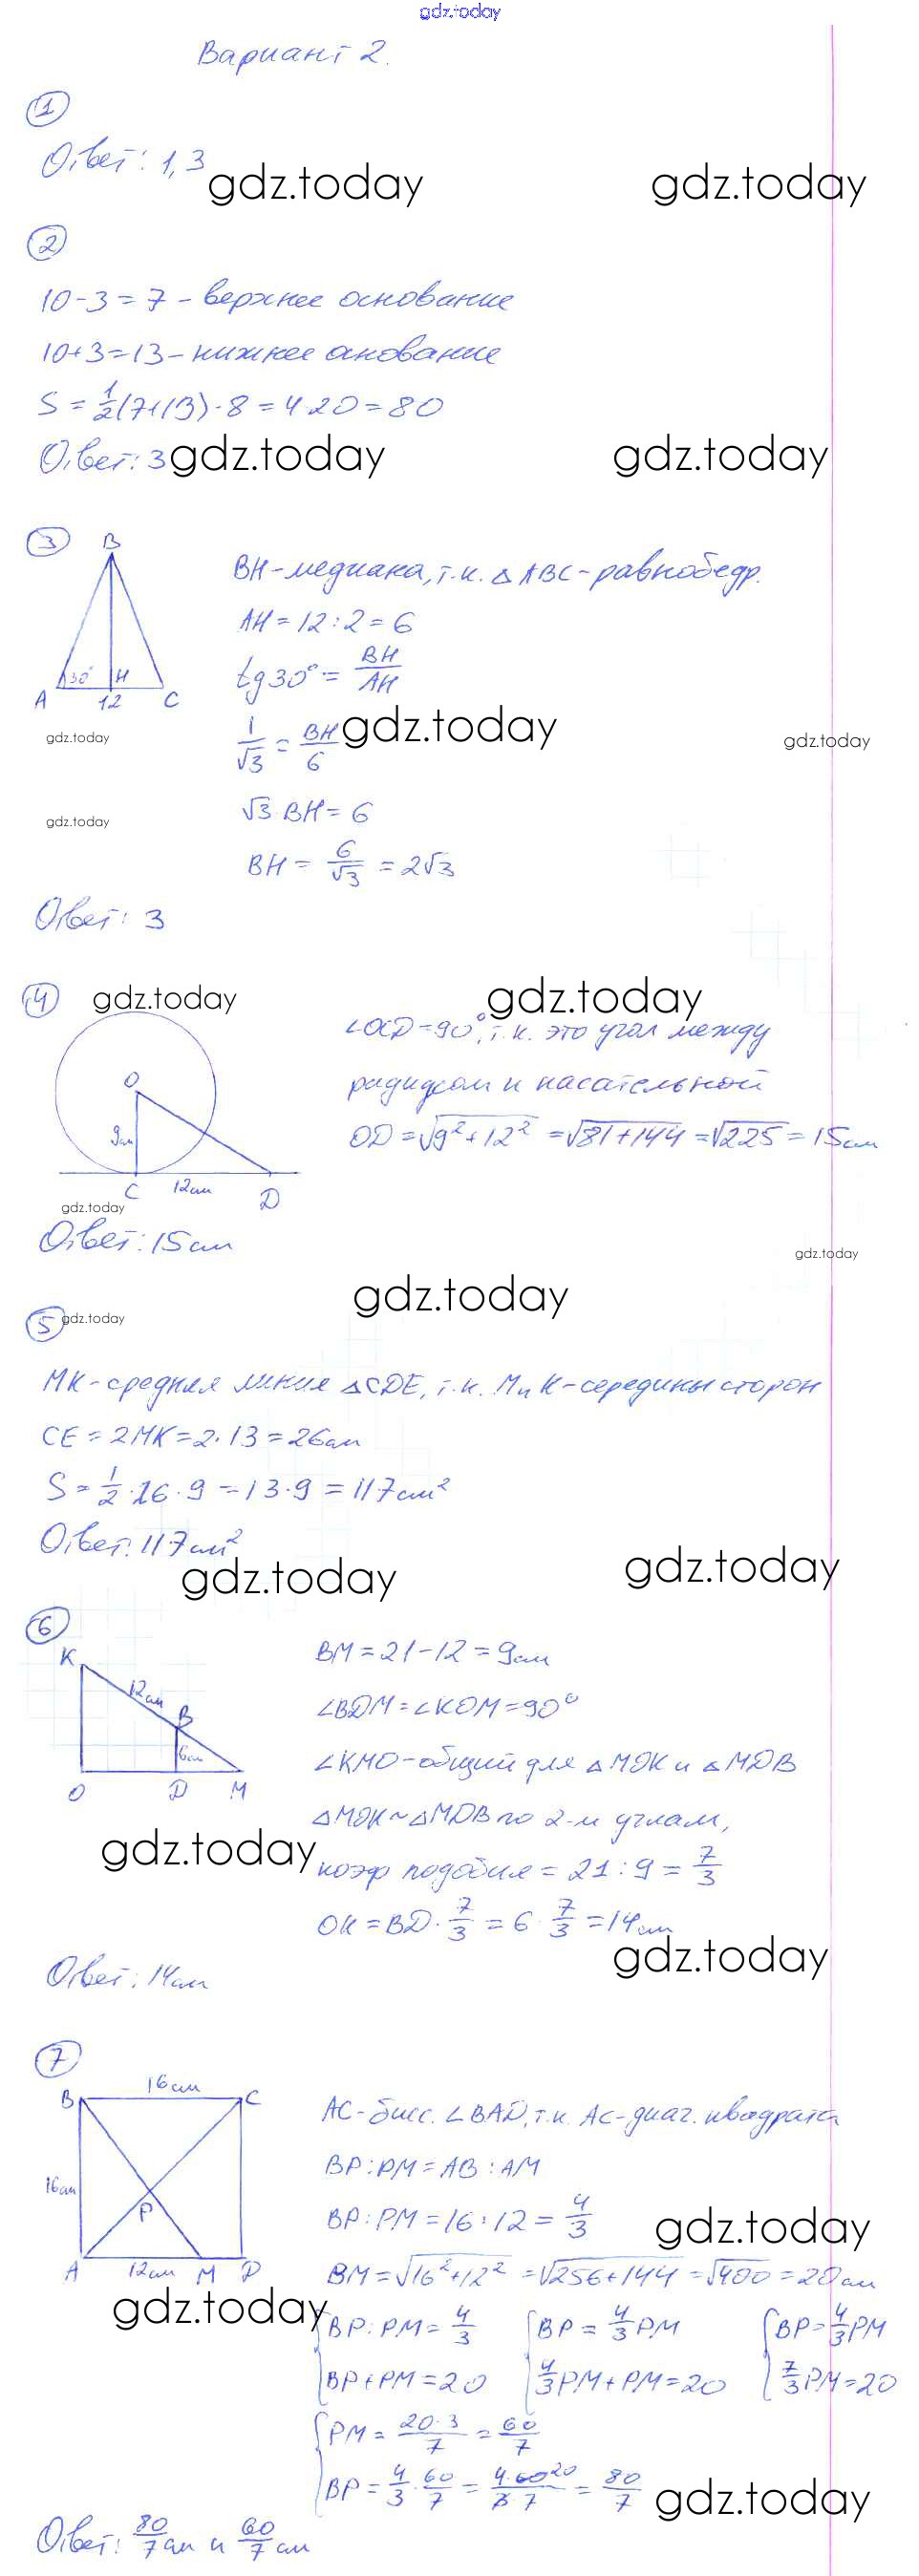 gdz.today
Вариант 2.
1
Ответ: 1,3
gdz.today gdz.today
2
10-3=7 - верхнее основание
10+3=13 - нижнее онование
S = 1/2(7+13)·8 = 4·20 = 80
Ответ: 3
gdz.today gdz.today
3
B
30° H
A 12 C
BH - медиана, т.к. △ABC - равнобедр.
AH = 12:2 = 6
tg30° = BH/AH
1/√3 = BH/6
gdz.today
gdz.today gdz.today
gdz.today
√3·BH = 6
BH = 6/√3 = 2√3
Ответ: 3
4
gdz.today gdz.today
O
9см
C 12см D
∠OCD = 90°, т.к. это угол между
радиусом и касательной
OD = √9²+12² = √81+144 = √225 = 15см
gdz.today
Ответ: 15см
gdz.today
gdz.today
5
gdz.today
MK - средняя линия △CDE, т.к. M и K - середины сторон
CE = 2MK = 2·13 = 26см
S = 1/2·26·9 = 13·9 = 117см²
Ответ: 117см²
gdz.today gdz.today
6
K
12см B
6см
O D M
BM = 21-12 = 9см
∠BDM = ∠KOM = 90°
∠KMO - общий для △MOK и △MDB
△MOK ~ △MDB по 2-м углам,
gdz.today
коэф подобия = 21:9 = 7/3
OK = BD·7/3 = 6·7/3 = 14см
gdz.today
Ответ: 14см
7
16см
B C
16см
P
A 12см M D
AC - бисс. ∠BAD, т.к. AC - диаг. квадрата
BP:PM = AB:AM
BP:PM = 16:12 = 4/3
gdz.today
BM = √16²+12² = √256+144 = √400 = 20см
gdz.today
{BP:PM = 4/3 {BP = 4/3PM {BP = 4/3PM
BP+PM = 20 4/3PM+PM = 20 7/3PM = 20
{PM = 20·3/7 = 60/7
BP = 4/3·60/7 = 4·60 20/3 7 = 80/7
gdz.today
Ответ: 80/7см и 60/7см